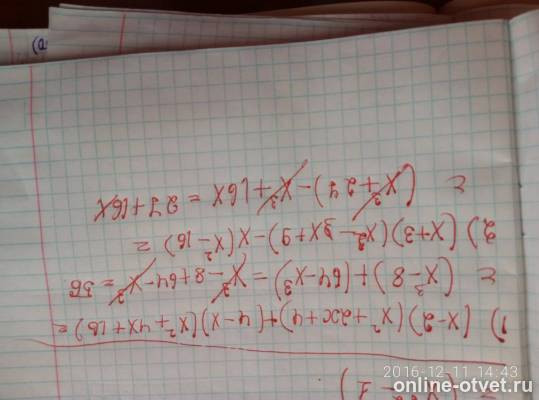 = (... - 7)
1) (x-2)(x²+2x+4)+(4-x)(x²+4x+16)=
= (x³-8)+(64-x³)=x³-8+64-x³= 56
2) (x+3)(x²-3x+9)-x(x²-16) =
= (x³+27)-x³+16x = 27+16x
2016-12-11 14:43
online-otvet.ru